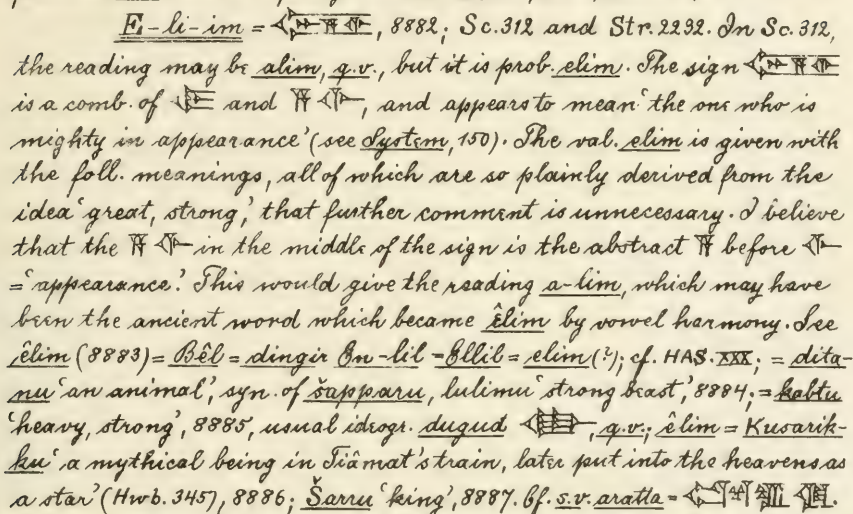 E-li-im = , 8882; Sc. 312 and Str. 2292. In Sc. 312,
the reading may be alim, q.v., but it is prob. elim. The sign
is a comb. of and 𒀀 𒅆, and appears to mean 'the one who is
mighty in appearance' (see System, 150). The val. elim is given with
the foll. meanings, all of which are so plainly derived from the
idea 'great, strong,' that further comment is unnecessary. I believe
that the 𒀀 𒅆 in the middle of the sign is the abstract 𒀀 before 𒅆
= 'appearance.' This would give the reading a-lim, which may have
been the ancient word which became êlim by vowel harmony. See
êlim (8883) = Bêl = dingir En-lil = Ellil = elim(?); cf. HAS. XXX; = dita-
nu 'an animal', syn. of šapparu, lulimu 'strong beast,' 8884; = kabtu
'heavy, strong', 8885, usual ideogr. dugud , q.v.; êlim = Kusarik-
ku 'a mythical being in Tiâmat's train, later put into the heavens as
a star' (Hwb. 345), 8886; Šarru 'king', 8887. Cf. s.v. aratta =